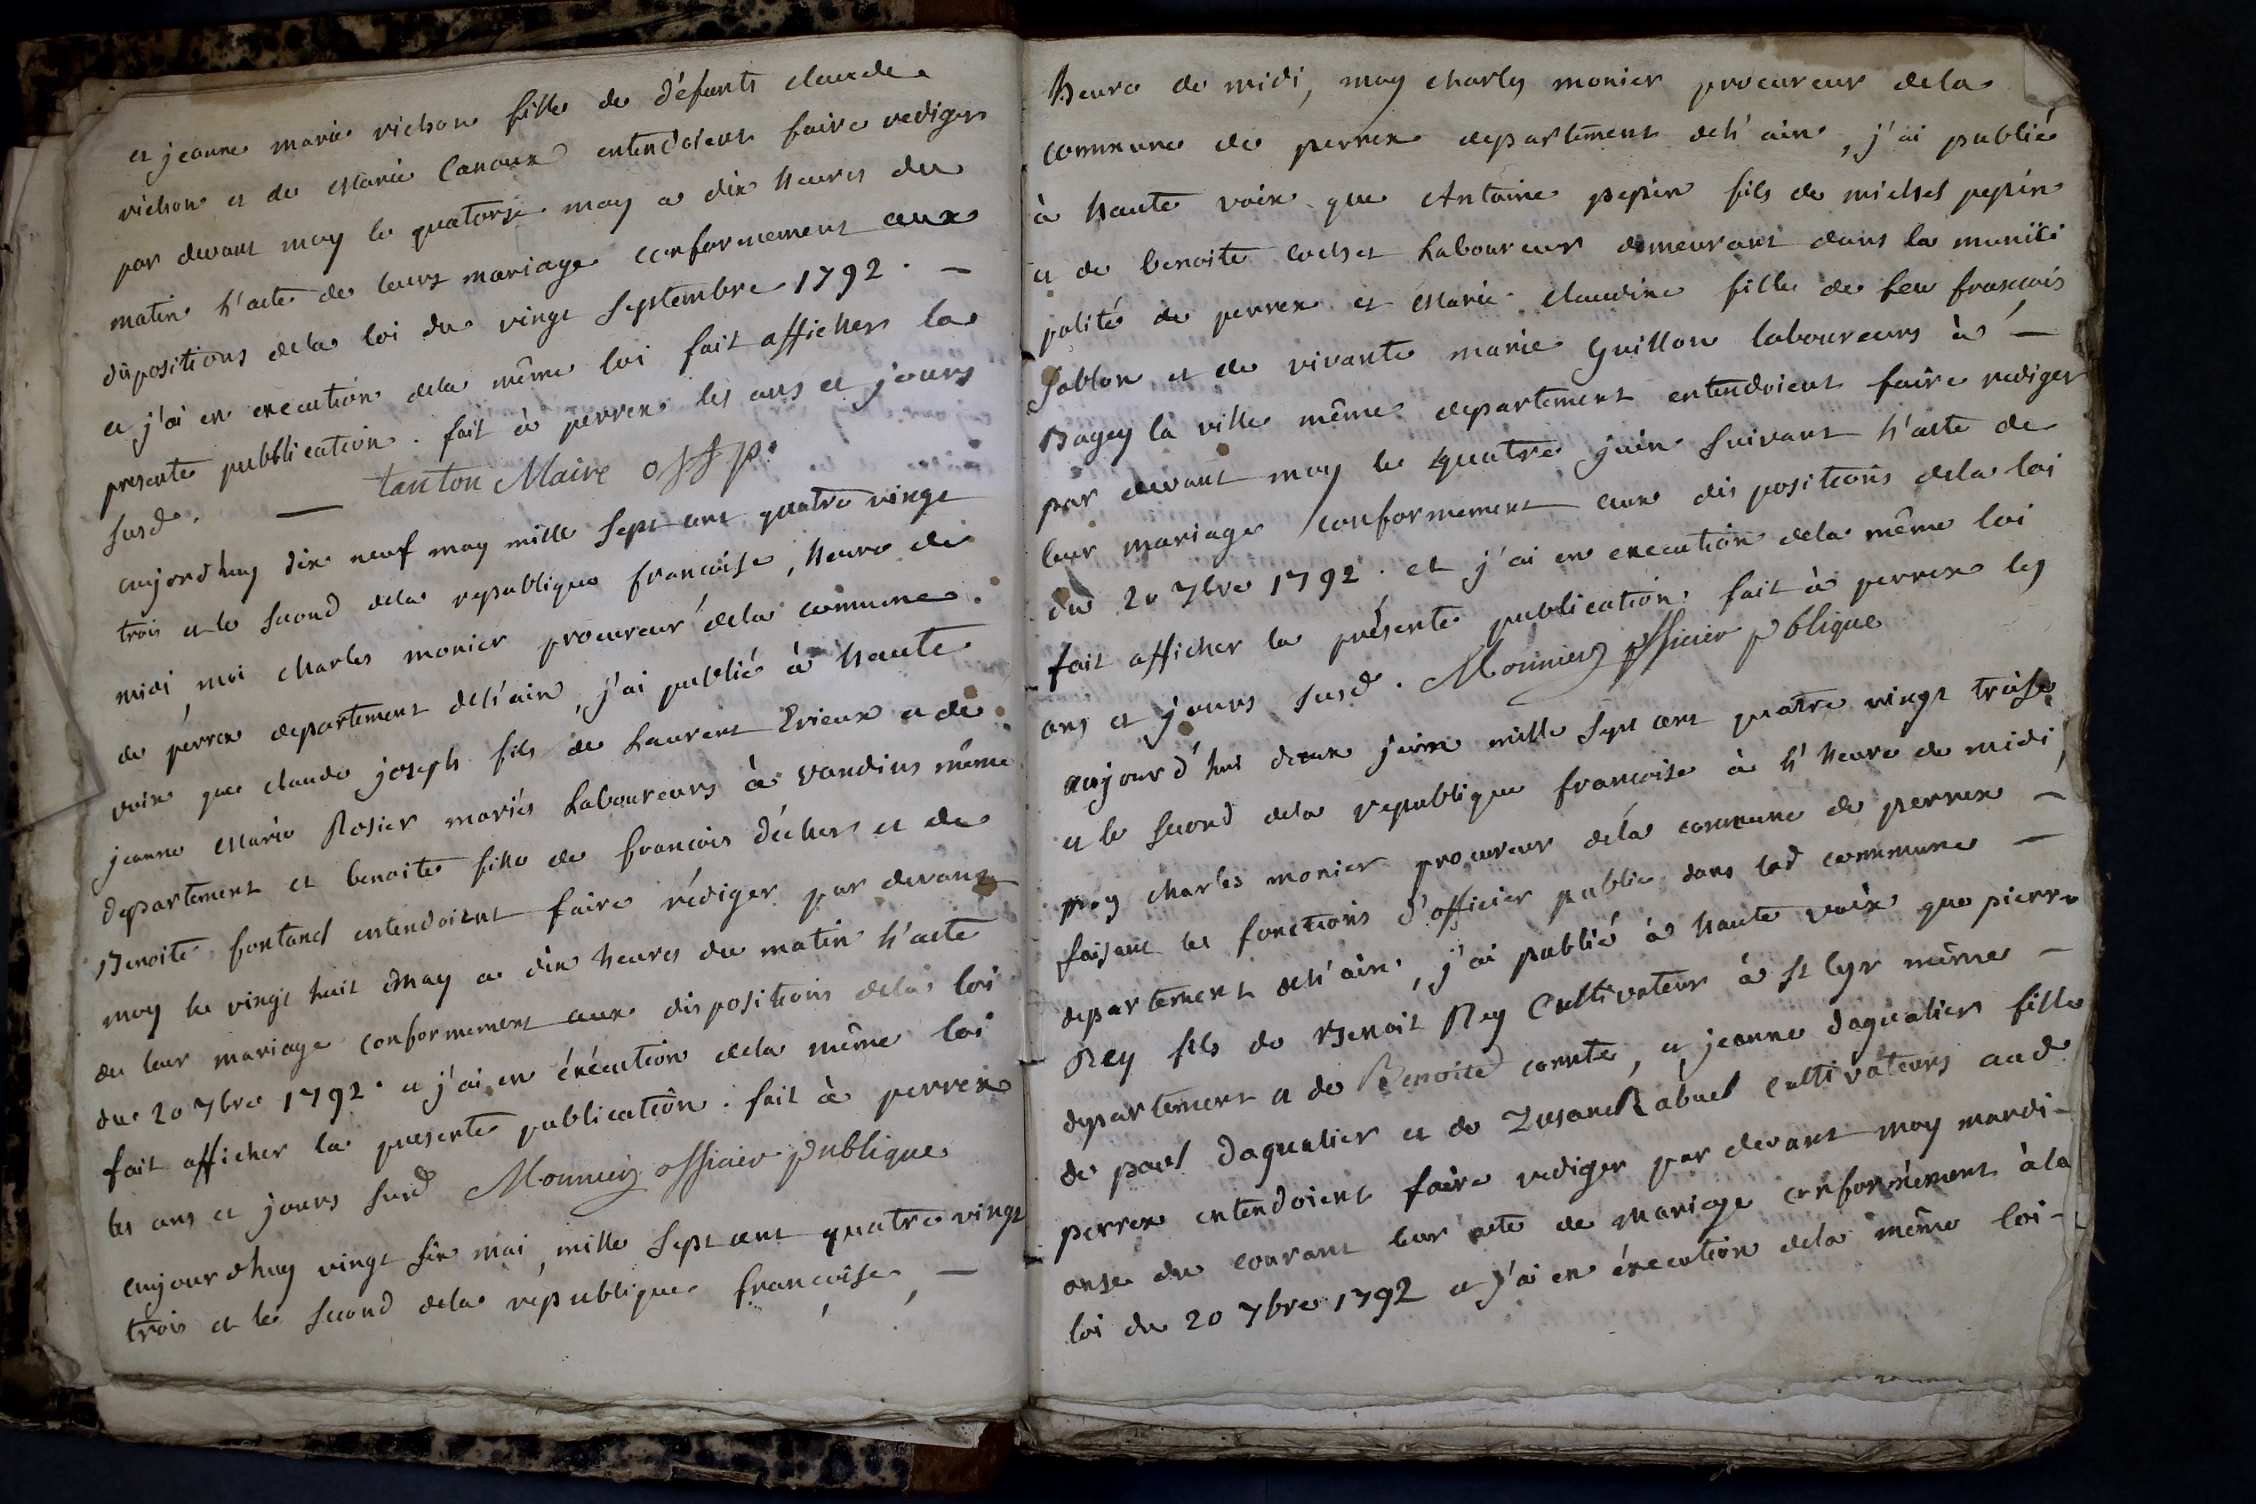 et jeanne marie vichon fille de défunts claude
vichon et de Marie Canoux entendoient faire rediger
par devant moy le quatorze may a dix heures du
matin l'acte de leurs mariage conformement aux
dispositions dela loi du vingt septembre 1792. —
et j'ai en execution dela même loi fait afficher la
presente pubblication. fait à perrex les ans et jours
susd. — tanton Maire off p.
aujordhuy dix neuf may mille sept cent quatre vingt
trois et le second dela republique francoise, heure de
midi, moi charles monier procureur dela commune.
de perrex departement del'ain, j'ai publié à haute
voix que claude joseph fils de Laurent Erieux et de
jeanne Marie Rosier mariés Laboureurs à vandins même
departement et benoite fille de francois déchers et de
Benoite fontanel entendoient faire rédiger par devant
moy le vingt huit may a dix heures du matin l'acte
de leur mariage conformement aux dispositions dela loi
du 20 7bre 1792. et j'ai en éxécution dela même loi
fait afficher la presente publication. fait à perrex
les ans et jours susd Monnier officier publique
aujourdhuy vingt six mai, mille sept cent quatre vingt
trois et le second dela république francoise, —
heure de midi, moy charles monier procureur dela
commune de perrex departement del'ain, j'ai publié
à haute voix que Antoine pepin fils de michel pepin
et de benoite cochet Laboureur demeurant dans la munici
palité de perrex et Marie claudine fille de feu francois
Sablon et de vivante marie Guillon laboureurs à —
Bagey la ville même departement entendoient faire rediger
par devant moy le quatre juin suivant l'acte de
leur mariage conformement aux dispositions dela loi
du 20 7bre 1792. et j'ai en execution dela même loi
fait afficher la présente publication. fait à perrex les
ans et jours susd. Monnier officier pblique
aujourd'hui deux juin mille sept cent quatre vingt treise
et le second dela republique francoise à l'heure de midi,
moy charles monier procureur déla commune de perrex —
faisant les fonctions d'officier public dans lad commune —
departement del'ain, j'ai publié à haute voix que pierre
Rey fils de Benoit Rey Cultivateur à st Cyr même —
departement et de Benoite comte, et jeanne daqualier fille
de paul daqualier et de Zusane Rabuel cultivateurs aud
perrex entendoient faire rediger par devant moy mardi-
onse du courant leur acte de mariage conformément à la
loi du 20 7bre 1792 et j'ai en éxecution dela même loi-